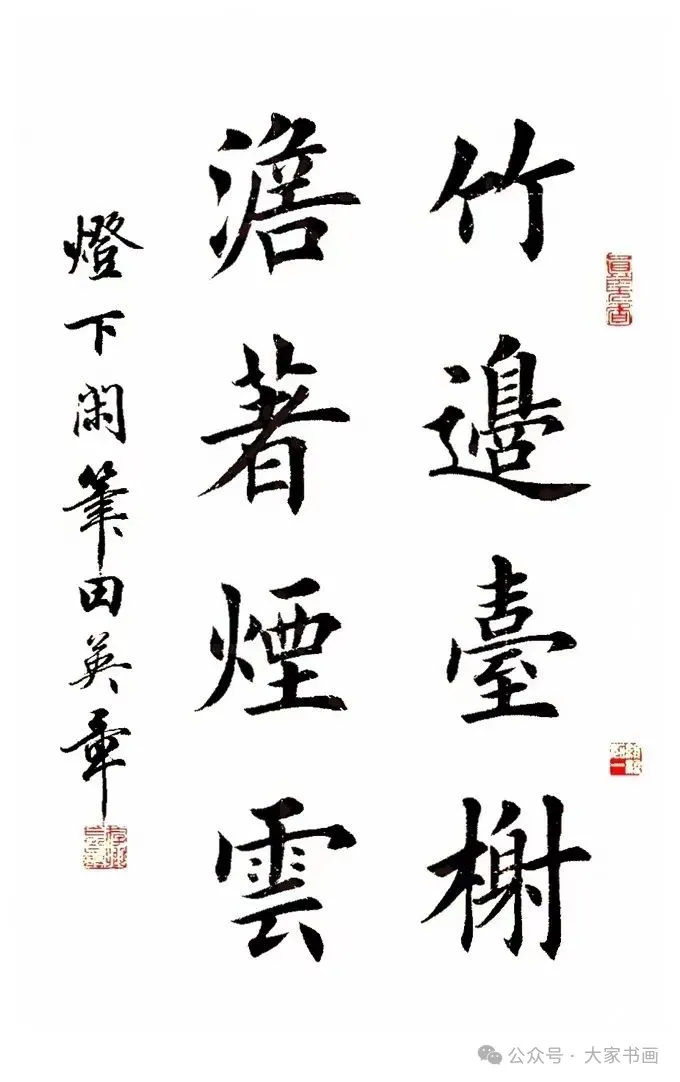 竹邉臺榭
澹著煙雲
燈下閑筆田英章
公众号·大家书画